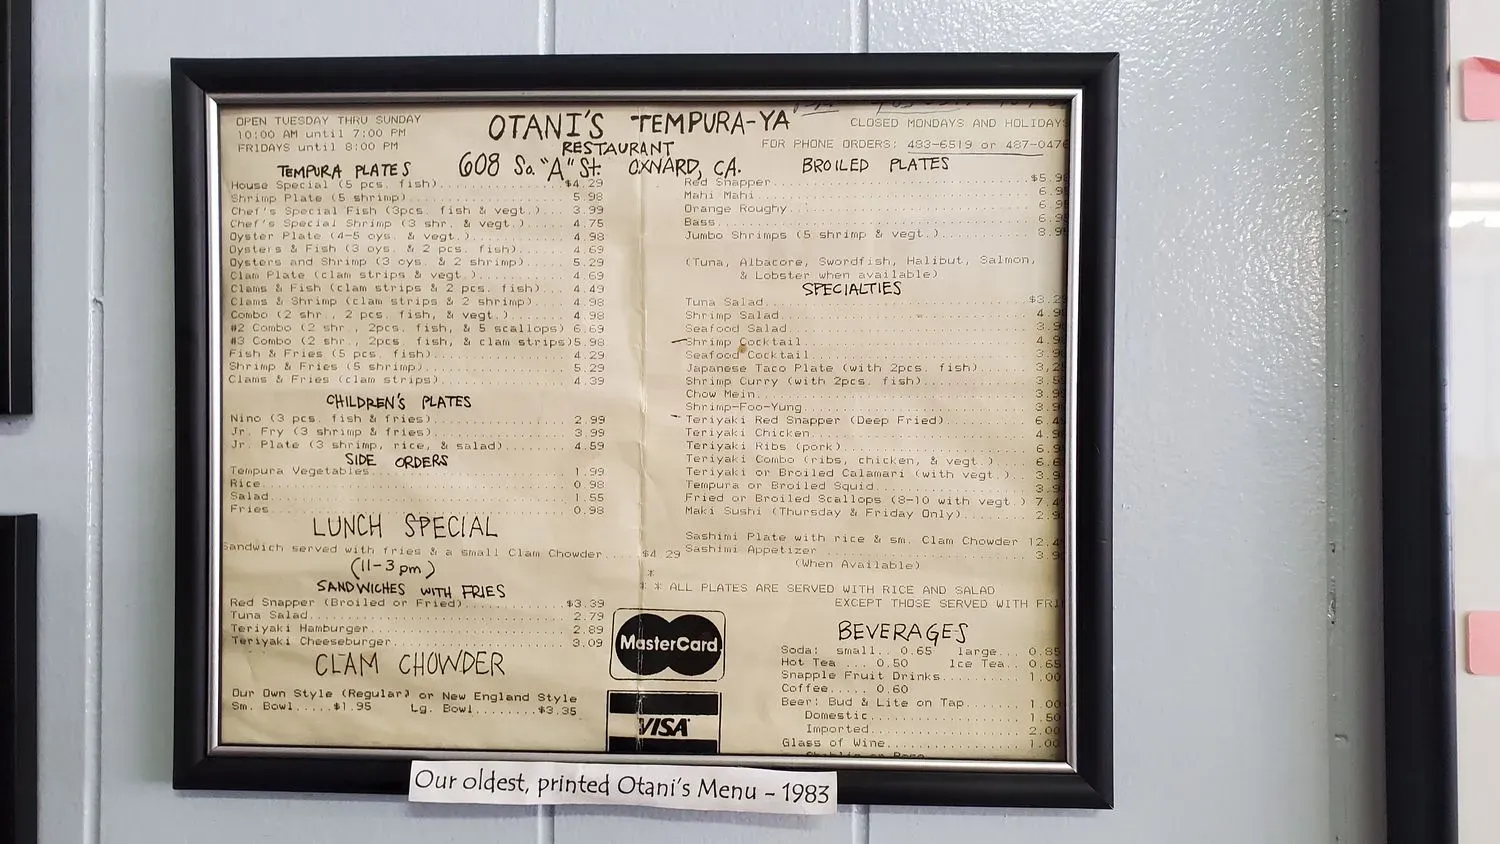 OPEN TUESDAY THRU SUNDAY
10:00 AM until 7:00 PM
FRIDAYS until 8:00 PM
OTANI'S TEMPURA-YA
RESTAURANT
608 So. "A" St. OXNARD, CA.
CLOSED MONDAYS AND HOLIDAYS
FOR PHONE ORDERS: 483-6519 or 487-0476
TEMPURA PLATES
House Special (5 pcs. fish) $4.29
Shrimp Plate (5 shrimp) 5.98
Chef's Special Fish (3pcs. fish & vegt.) 3.99
Chef's Special Shrimp (3 shr. & vegt.) 4.75
Oyster Plate (4-5 oys. & vegt.) 4.98
Oysters & Fish (3 oys. & 2 pcs. fish) 4.69
Oysters and Shrimp (3 oys. & 2 shrimp) 5.29
Clam Plate (clam strips & vegt.) 4.69
Clams & Fish (clam strips & 2 pcs. fish) 4.49
Clams & Shrimp (clam strips & 2 shrimp) 4.98
Combo (2 shr., 2 pcs. fish, & vegt.) 4.98
#2 Combo (2 shr., 2pcs. fish, & 5 scallops) 6.69
#3 Combo (2 shr., 2pcs. fish, & clam strips) 5.98
Fish & Fries (5 pcs. fish) 4.29
Shrimp & Fries (5 shrimp) 5.29
Clams & Fries (clam strips) 4.39
CHILDREN'S PLATES
Nino (3 pcs. fish & fries) 2.99
Jr. Fry (3 shrimp & fries) 3.99
Jr. Plate (3 shrimp, rice, & salad) 4.59
SIDE ORDERS
Tempura Vegetables 1.99
Rice 0.98
Salad 1.55
Fries 0.98
LUNCH SPECIAL
Sandwich served with fries & a small Clam Chowder $4.29
(11-3 pm)
SANDWICHES WITH FRIES
Red Snapper (Broiled or Fried) $3.39
Tuna Salad 2.79
Teriyaki Hamburger 2.89
Teriyaki Cheeseburger 3.09
CLAM CHOWDER
Our Own Style (Regular) or New England Style
Sm. Bowl $1.95 Lg. Bowl $3.35
BROILED PLATES
Red Snapper $5.9
Mahi Mahi 6.9
Orange Roughy 6.9
Bass 6.9
Jumbo Shrimps (5 shrimp & vegt.) 8.9
(Tuna, Albacore, Swordfish, Halibut, Salmon,
& Lobster when available)
SPECIALTIES
Tuna Salad $3.2
Shrimp Salad 4.9
Seafood Salad 3.9
Shrimp Cocktail 4.9
Seafood Cocktail 3.9
Japanese Taco Plate (with 2pcs. fish) 3,2
Shrimp Curry (with 2pcs. fish) 3.5
Chow Mein 3.9
Shrimp-Foo-Yung 3.9
Teriyaki Red Snapper (Deep Fried) 6.4
Teriyaki Chicken 4.9
Teriyaki Ribs (pork) 6.9
Teriyaki Combo (ribs, chicken, & vegt.) 6.6
Teriyaki or Broiled Calamari (with vegt.) 3.9
Tempura or Broiled Squid 3.9
Fried or Broiled Scallops (8-10 with vegt.) 7.4
Maki Sushi (Thursday & Friday Only) 2.9
Sashimi Plate with rice & sm. Clam Chowder 12.4
Sashimi Appetizer 3.9
(When Available)
* * * ALL PLATES ARE SERVED WITH RICE AND SALAD
EXCEPT THOSE SERVED WITH FRI
MasterCard
VISA
BEVERAGES
Soda: small.. 0.65 large... 0.85
Hot Tea ... 0.50 Ice Tea.. 0.65
Snapple Fruit Drinks 1.00
Coffee..... 0.60
Beer: Bud & Lite on Tap 1.00
Domestic 1.50
Imported 2.00
Glass of Wine 1.00
Our oldest, printed Otani's Menu - 1983